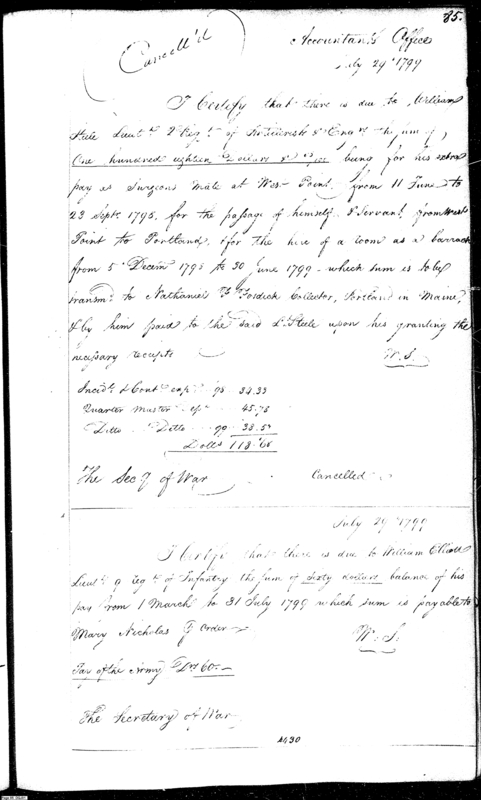 35.
Cancell'd
Accountants Office
July 29th 1799
I Certify that there is due to William
Steele Lieutt 2 Regt of Artillerists & Engrs the sum of,
One hundred eighteen Dollars & 68/100 being for his extra
pay as Surgeons Mate at West Point from 11 June to
23 Sept 1795 for the passage of himself & Servant from West
Point to Portland, & for the hire of a room as a barrack
from 5 Decem 1798 to 30 June 1799 - which sum is to be
transmd to Nathaniel F Fosdick Collector, Portland in Maine,
& by him paid to the said Lt Steele upon his granting the
necessary receipts
W. S.
Incidl & Cont exps 98 34.33
Quarter Master 98 45.78
Ditto Ditto 99 38.57
Dolls 118.68
The Secy of War
Cancelled
July 29th 1799
I Certify that there is due to William Elliott
Lieutt 9 regt of Infantry the sum of Sixty dollars balance of his
pay from 1 March to 31 July 1799 which sum is payable to
Mary Nicholas Order
W. S.
Pay of the Army Drs 60.-
The Secretary of War
4430